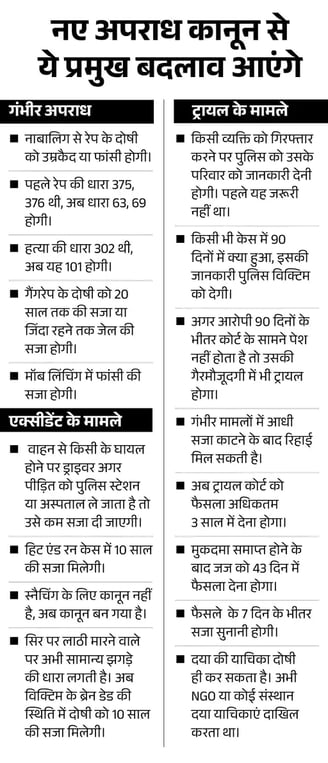 नए अपराध कानून से
ये प्रमुख बदलाव आएंगे
गंभीर अपराध
नाबालिग से रेप के दोषी
को उम्रकैद या फांसी होगी।
पहले रेप की धारा 375,
376 थी, अब धारा 63, 69
होगी।
हत्या की धारा 302 थी,
अब यह 101 होगी।
गैंगरेप के दोषी को 20
साल तक की सजा या
जिंदा रहने तक जेल की
सजा होगी।
मॉब लिंचिंग में फांसी की
सजा होगी।
एक्सीडेंट के मामले
वाहन से किसी के घायल
होने पर ड्राइवर अगर
पीड़ित को पुलिस स्टेशन
या अस्पताल ले जाता है तो
उसे कम सजा दी जाएगी।
हिट एंड रन केस में 10 साल
की सजा मिलेगी।
स्नैचिंग के लिए कानून नहीं
है, अब कानून बन गया है।
सिर पर लाठी मारने वाले
पर अभी सामान्य झगड़े
की धारा लगती है। अब
विक्टिम के ब्रेन डेड की
स्थिति में दोषी को 10 साल
की सजा मिलेगी।
ट्रायल के मामले
किसी व्यक्ति को गिरफ्तार
करने पर पुलिस को उसके
परिवार को जानकारी देनी
होगी। पहले यह जरूरी
नहीं था।
किसी भी केस में 90
दिनों में क्या हुआ, इसकी
जानकारी पुलिस विक्टिम
को देगी।
अगर आरोपी 90 दिनों के
भीतर कोर्ट के सामने पेश
नहीं होता है तो उसकी
गैरमौजूदगी में भी ट्रायल
होगा।
गंभीर मामलों में आधी
सजा काटने के बाद रिहाई
मिल सकती है।
अब ट्रायल कोर्ट को
फैसला अधिकतम
3 साल में देना होगा।
मुकदमा समाप्त होने के
बाद जज को 43 दिन में
फैसला देना होगा।
फैसले के 7 दिन के भीतर
सजा सुनानी होगी।
दया की याचिका दोषी
ही कर सकता है। अभी
NGO या कोई संस्थान
दया याचिकाएं दाखिल
करता था।